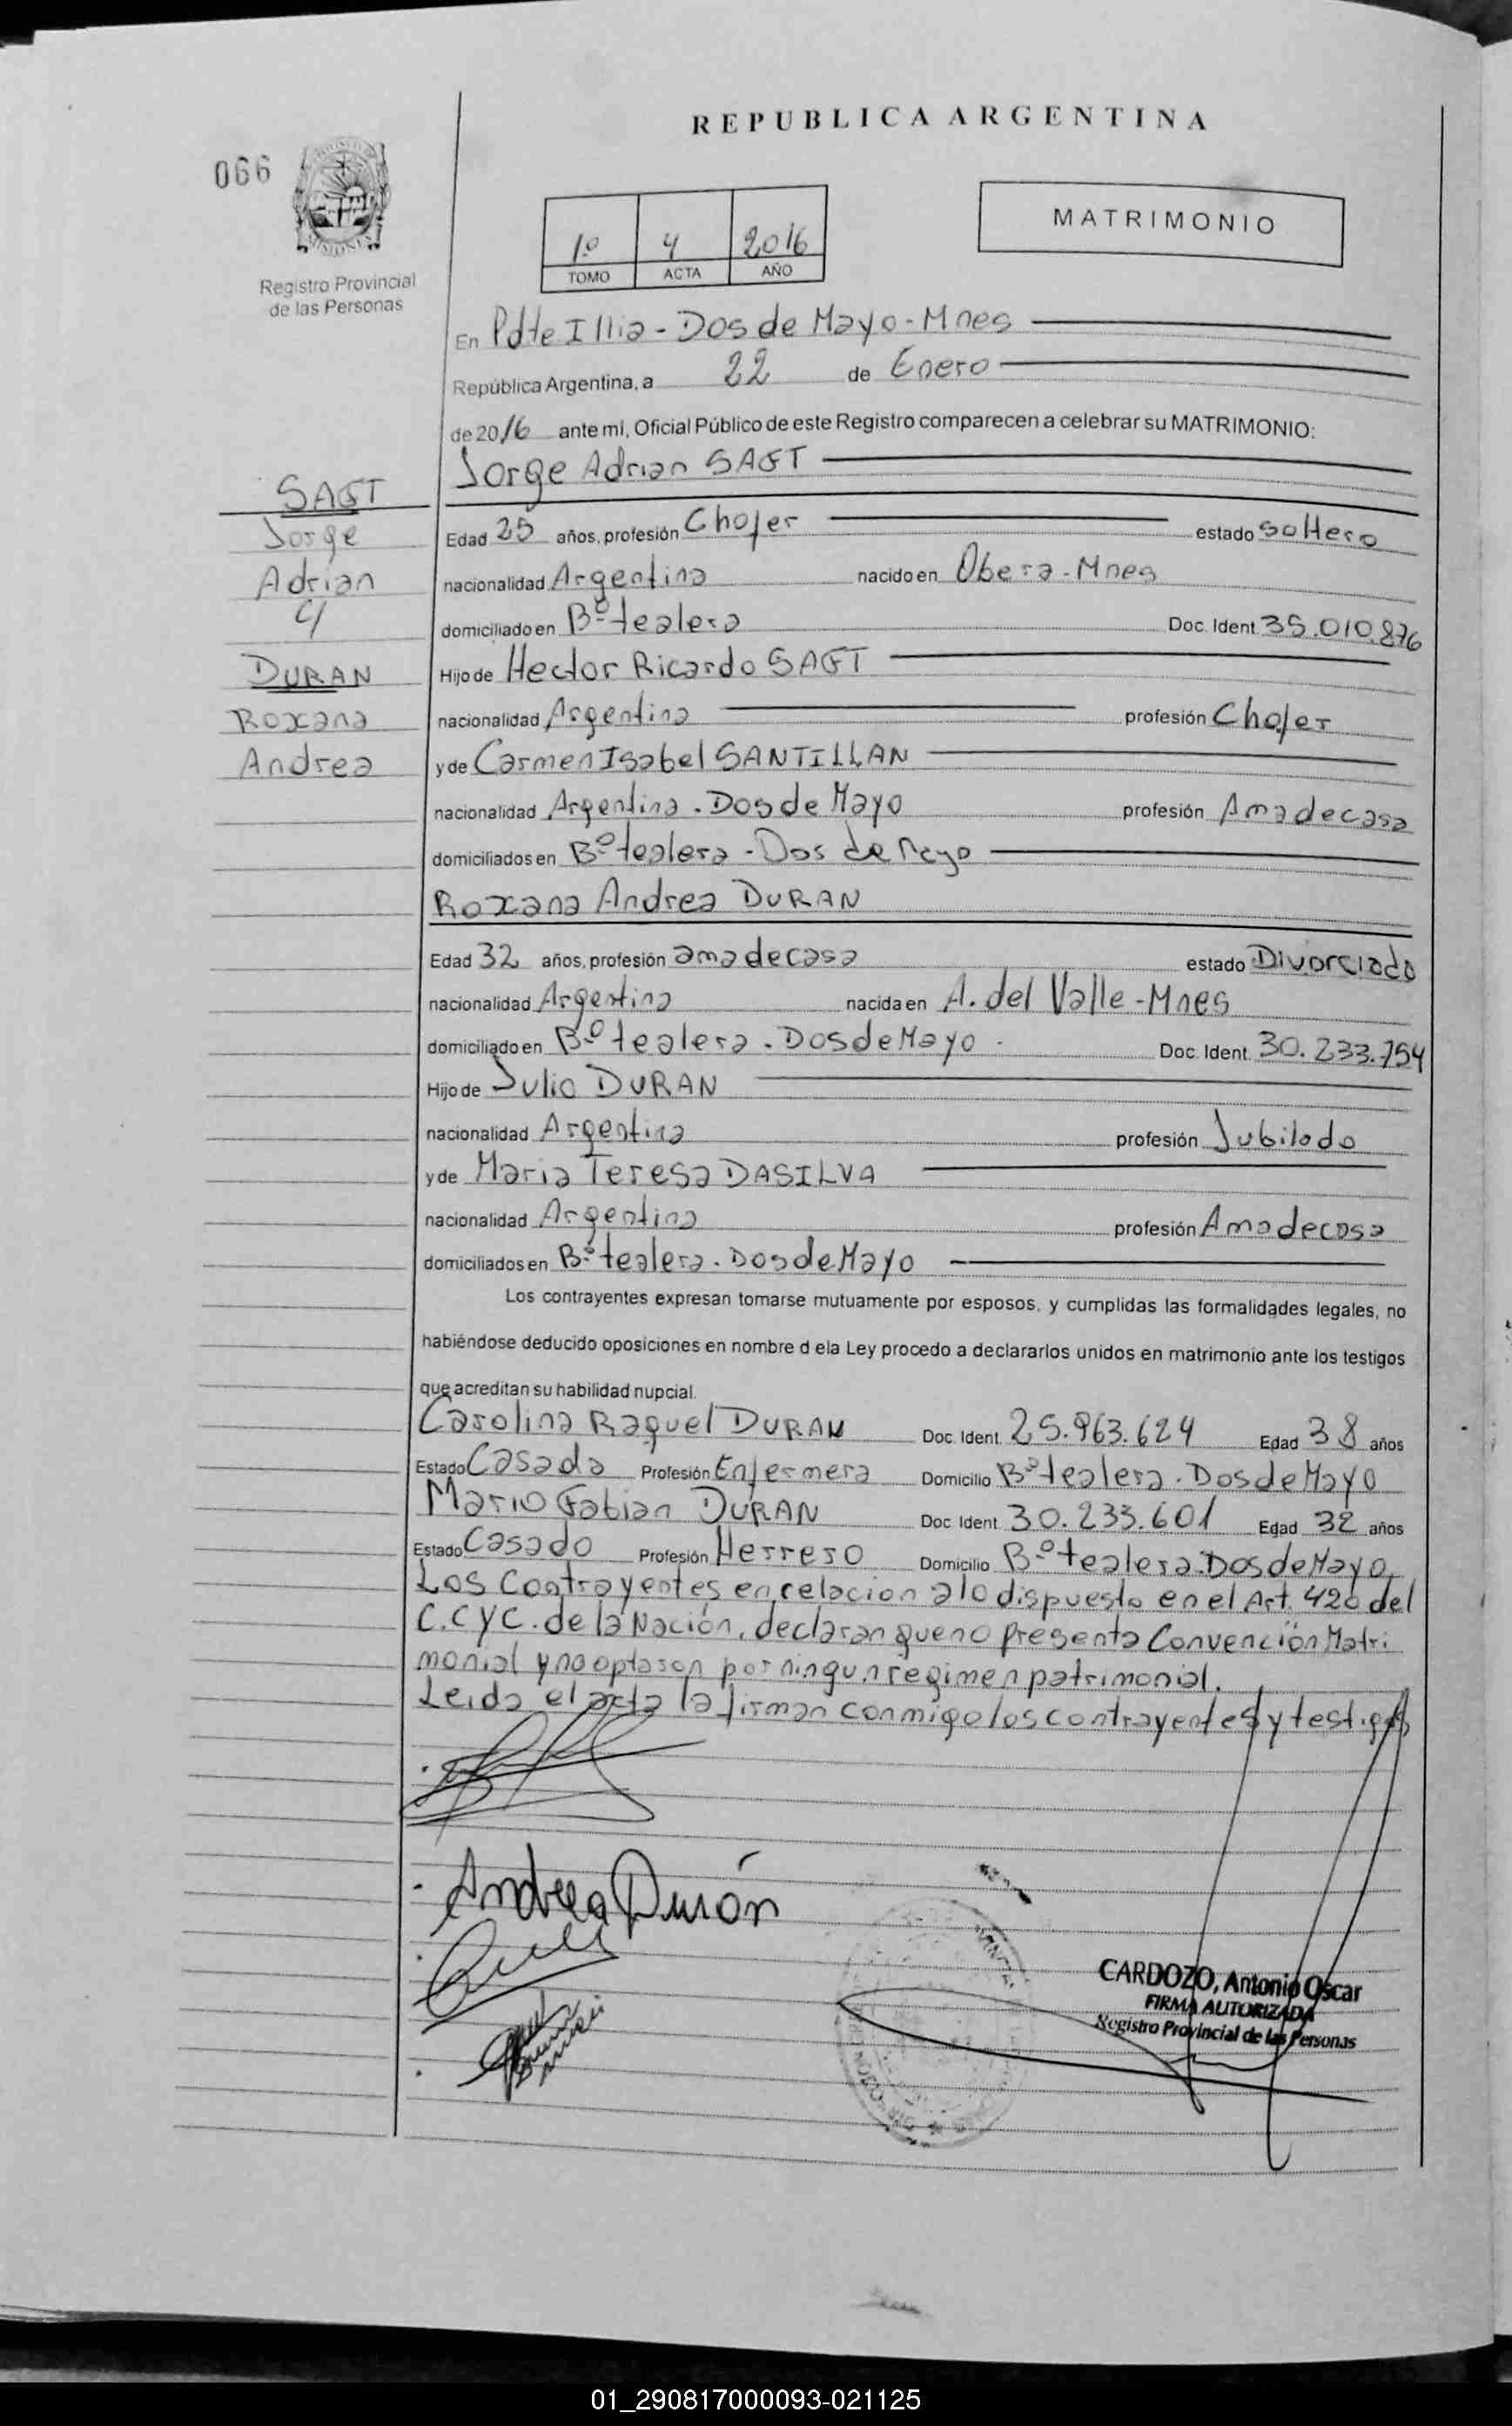 REPUBLICA ARGENTINA
066
MISIONES
Registro Provincial
de las Personas
1º 4 2016
TOMO ACTA AÑO
MATRIMONIO
En Pdte Illia - Dos de Mayo - Mnes
República Argentina, a 22 de Enero
de 2016 ante mí, Oficial Público de este Registro comparecen a celebrar su MATRIMONIO:
Jorge Adrian SAFT
SAFT
Jorge
Adrian
C/
DURAN
Roxana
Andrea
Edad 25 años, profesión Chofer estado soltero
nacionalidad Argentina nacido en Obera - Mnes
domiciliado en Bº tealera Doc. Ident. 35.010.876
Hijo de Hector Ricardo SAFT
nacionalidad Argentina profesión Chofer
y de Carmen Isabel SANTILLAN
nacionalidad Argentina - Dos de Mayo profesión Ama de casa
domiciliados en Bº tealera - Dos de Mayo
Roxana Andrea DURAN
Edad 32 años, profesión ama de casa estado Divorciado
nacionalidad Argentina nacida en A. del Valle - Mnes
domiciliado en Bº tealera - Dos de Mayo - Doc. Ident. 30.233.754
Hijo de Julio DURAN
nacionalidad Argentina profesión Jubilado
y de Maria Teresa DASILVA
nacionalidad Argentina profesión Ama de casa
domiciliados en Bº tealera - Dos de Mayo
Los contrayentes expresan tomarse mutuamente por esposos, y cumplidas las formalidades legales, no
habiéndose deducido oposiciones en nombre d ela Ley procedo a declararlos unidos en matrimonio ante los testigos
que acreditan su habilidad nupcial.
Carolina Raquel DURAN Doc. Ident. 25.963.624 Edad 38 años
Estado Casada Profesión Enfermera Domicilio Bº tealera - Dos de Mayo
Mario Fabian DURAN Doc Ident. 30.233.601 Edad 32 años
Estado Casado Profesión Herrero Domicilio Bº tealera - Dos de Mayo.
Los Contrayentes en relacion a lo dispuesto en el Art. 420 del
C.C y C. de la Nación, declaran que no presenta Convención Matri
monial y no optason por ningun regimen patrimonial.
Leida el acta la firman conmigo los contrayentes y testigos
Andrea Durán
CARDOZO, Antonio Oscar
FIRMA AUTORIZADA
Registro Provincial de las Personas
01_290817000093-021125